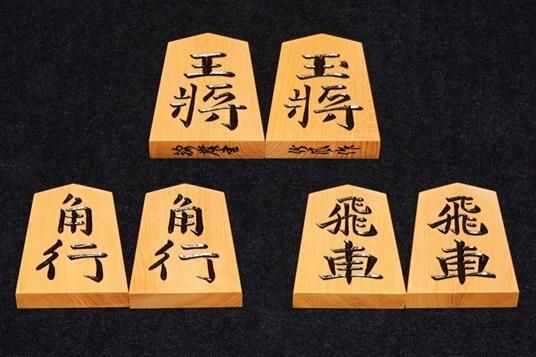 王將
玉將
角行
角行
飛車
飛車